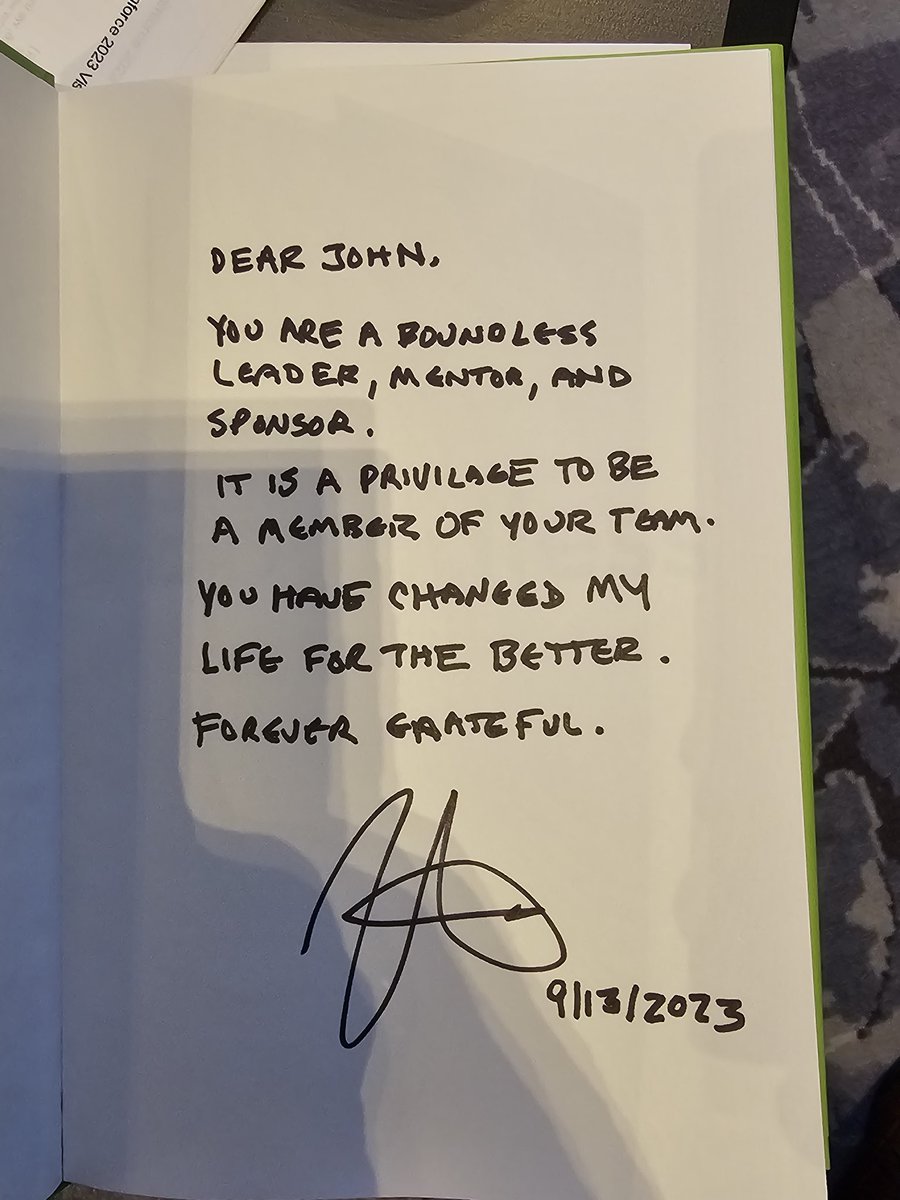 nforce 2023 Vis
DEAR JOHN,
YOU ARE A BOUNDLESS
LEADER, MENTOR, AND
SPONSOR.
IT IS A PRIVILAGE TO BE
A MEMBER OF YOUR TEAM.
YOU HAVE CHANGED MY
LIFE FOR THE BETTER.
FOREVER GRATEFUL.
9/13/2023